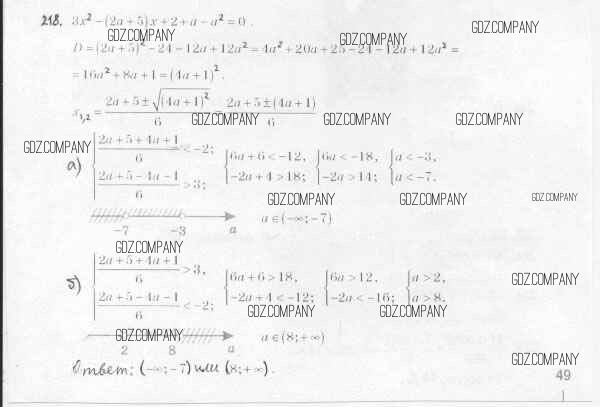 218. 3x² − (2a + 5)x + 2 + a − a² = 0 .
GDZ.COMPANY
GDZ.COMPANY
GDZ.COMPANY
D = (2a + 5)² − 24 − 12a + 12a² = 4a² + 20a + 25 − 24 − 12a + 12a² =
= 16a² + 8a + 1 = (4a + 1)² .
x₁,₂ = (2a + 5 ± √(4a + 1)²)/6 = (2a + 5 ± (4a + 1))/6
GDZ.COMPANY GDZ.COMPANY GDZ.COMPANY
GDZ.COMPANY
а) { (2a + 5 + 4a + 1)/6 < −2; (2a + 5 − 4a − 1)/6 > 3; { 6a + 6 < −12, −2a + 4 > 18; { 6a < −18, −2a > 14; { a < −3, a < −7.
GDZ.COMPANY GDZ.COMPANY GDZ.COMPANY
−7 −3 a a ∈ (−∞; −7)
GDZ.COMPANY
б) { (2a + 5 + 4a + 1)/6 > 3, (2a + 5 − 4a − 1)/6 < −2; { 6a + 6 > 18, −2a + 4 < −12; { 6a > 12, −2a < −16; { a > 2, a > 8.
GDZ.COMPANY
GDZ.COMPANY GDZ.COMPANY
GDZ.COMPANY
2 8 a a ∈ (8; +∞)
GDZ.COMPANY
Ответ: (−∞; −7) или (8; +∞).
49